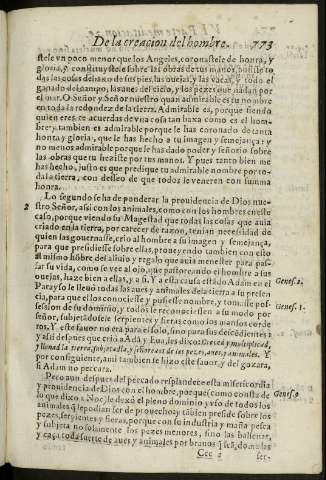 De la creacion del hombre. 773
stele vn poco menor que los Angeles, coronastele de honra, y
gloria, y constituystele sobre las obras de tus manos, pusiste to
das las cosas debaxo de sus pies, las ouejas, y las vacas, y todo el
ganado del campo, las aues del cielo, y los pezes que nadan por
el mar. O Señor y Señor nuestro quan admirable es tu nombre
en toda la redondez de la tierra. Admirable es, porque siendo
quien eres te acuerdas de vna cosa tan baxa como es el hom-
bre: y tambien es admirable porque le has coronado de tanta
honra, y gloria, que le has hecho a tu imagen y semejança: y
no menos admirable porque le has dado poder y señorio sobre
las obras que tu heziste por tus manos. Y pues tanto bien me
has hecho, justo es que predique tu admirable nombre por to-
da la tierra, con desseo de que todos le veneren con summa
honra.
2 Lo segundo se ha de ponderar la prouidencia de Dios nue-
stro Señor, assi con los animales, como con los hombres en este
caso, porque viendo su Magestad que todas las cosas que auia
criado en la tierra, por carecer de razon, tenian necessidad de
quien las gouernasse, crio al hombre a su imagen y semejança,
para que presidiesse sobre ellas, proueyendo tambien con esto
al mismo hõbre del aliuio, y regalo que auia menester para pas-
sar su vida, como se vee al ojo, que pastoreando el hombre a sus
ouejas, haze bien a ellas, y a si. Y a esta causa estãdo Adam en el
Parayso le lleuò todas las aues y animales de la tierra a su presen
cia, para que el los conociesse y pusiesse nombre, y tomasse pos-
session de su dominio, y todos le reconociessen a su modo por
señor, subjetãdosele serpientes y fieras como los mansos corde
ros. Y este fauor no era para el solo, sino para sus descẽdientes:
y assi despues que criò a Adã y Eua, les dixo: Creced y multiplicad,
y llenad la tierra, subjetadla, y señoread de los pezes, aues, y animales. Y
por consiguiente, aun tambien se hizo este fauor, y del gozara,
si Adam no peccara.
Genes. 2.
Genes. 1.
Pero aun despues del peccado resplandece esta misericordia
y prouidencia de Dios con el hombre, porque (como consta de
lo que dixo a Noe) le dexò el pleno dominio y vso de todos los
animales q̃ le podian ser de prouecho: y tãbien preside sobre los
pezes, serpientes y fieras, porque con su industria y maña pesca
y subjeta no solamente los pezes menores, sino las ballenas,
y caça toda suerte de aues y animales por brauos q̃ seã, doma las
Genes. 9
Ccc 2 ser-